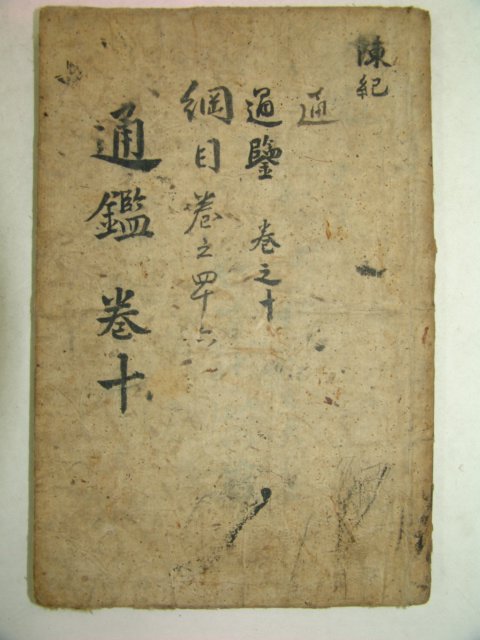 陳紀
通
通鑒 卷之十
綱目 卷之四十六
通鑑 卷十